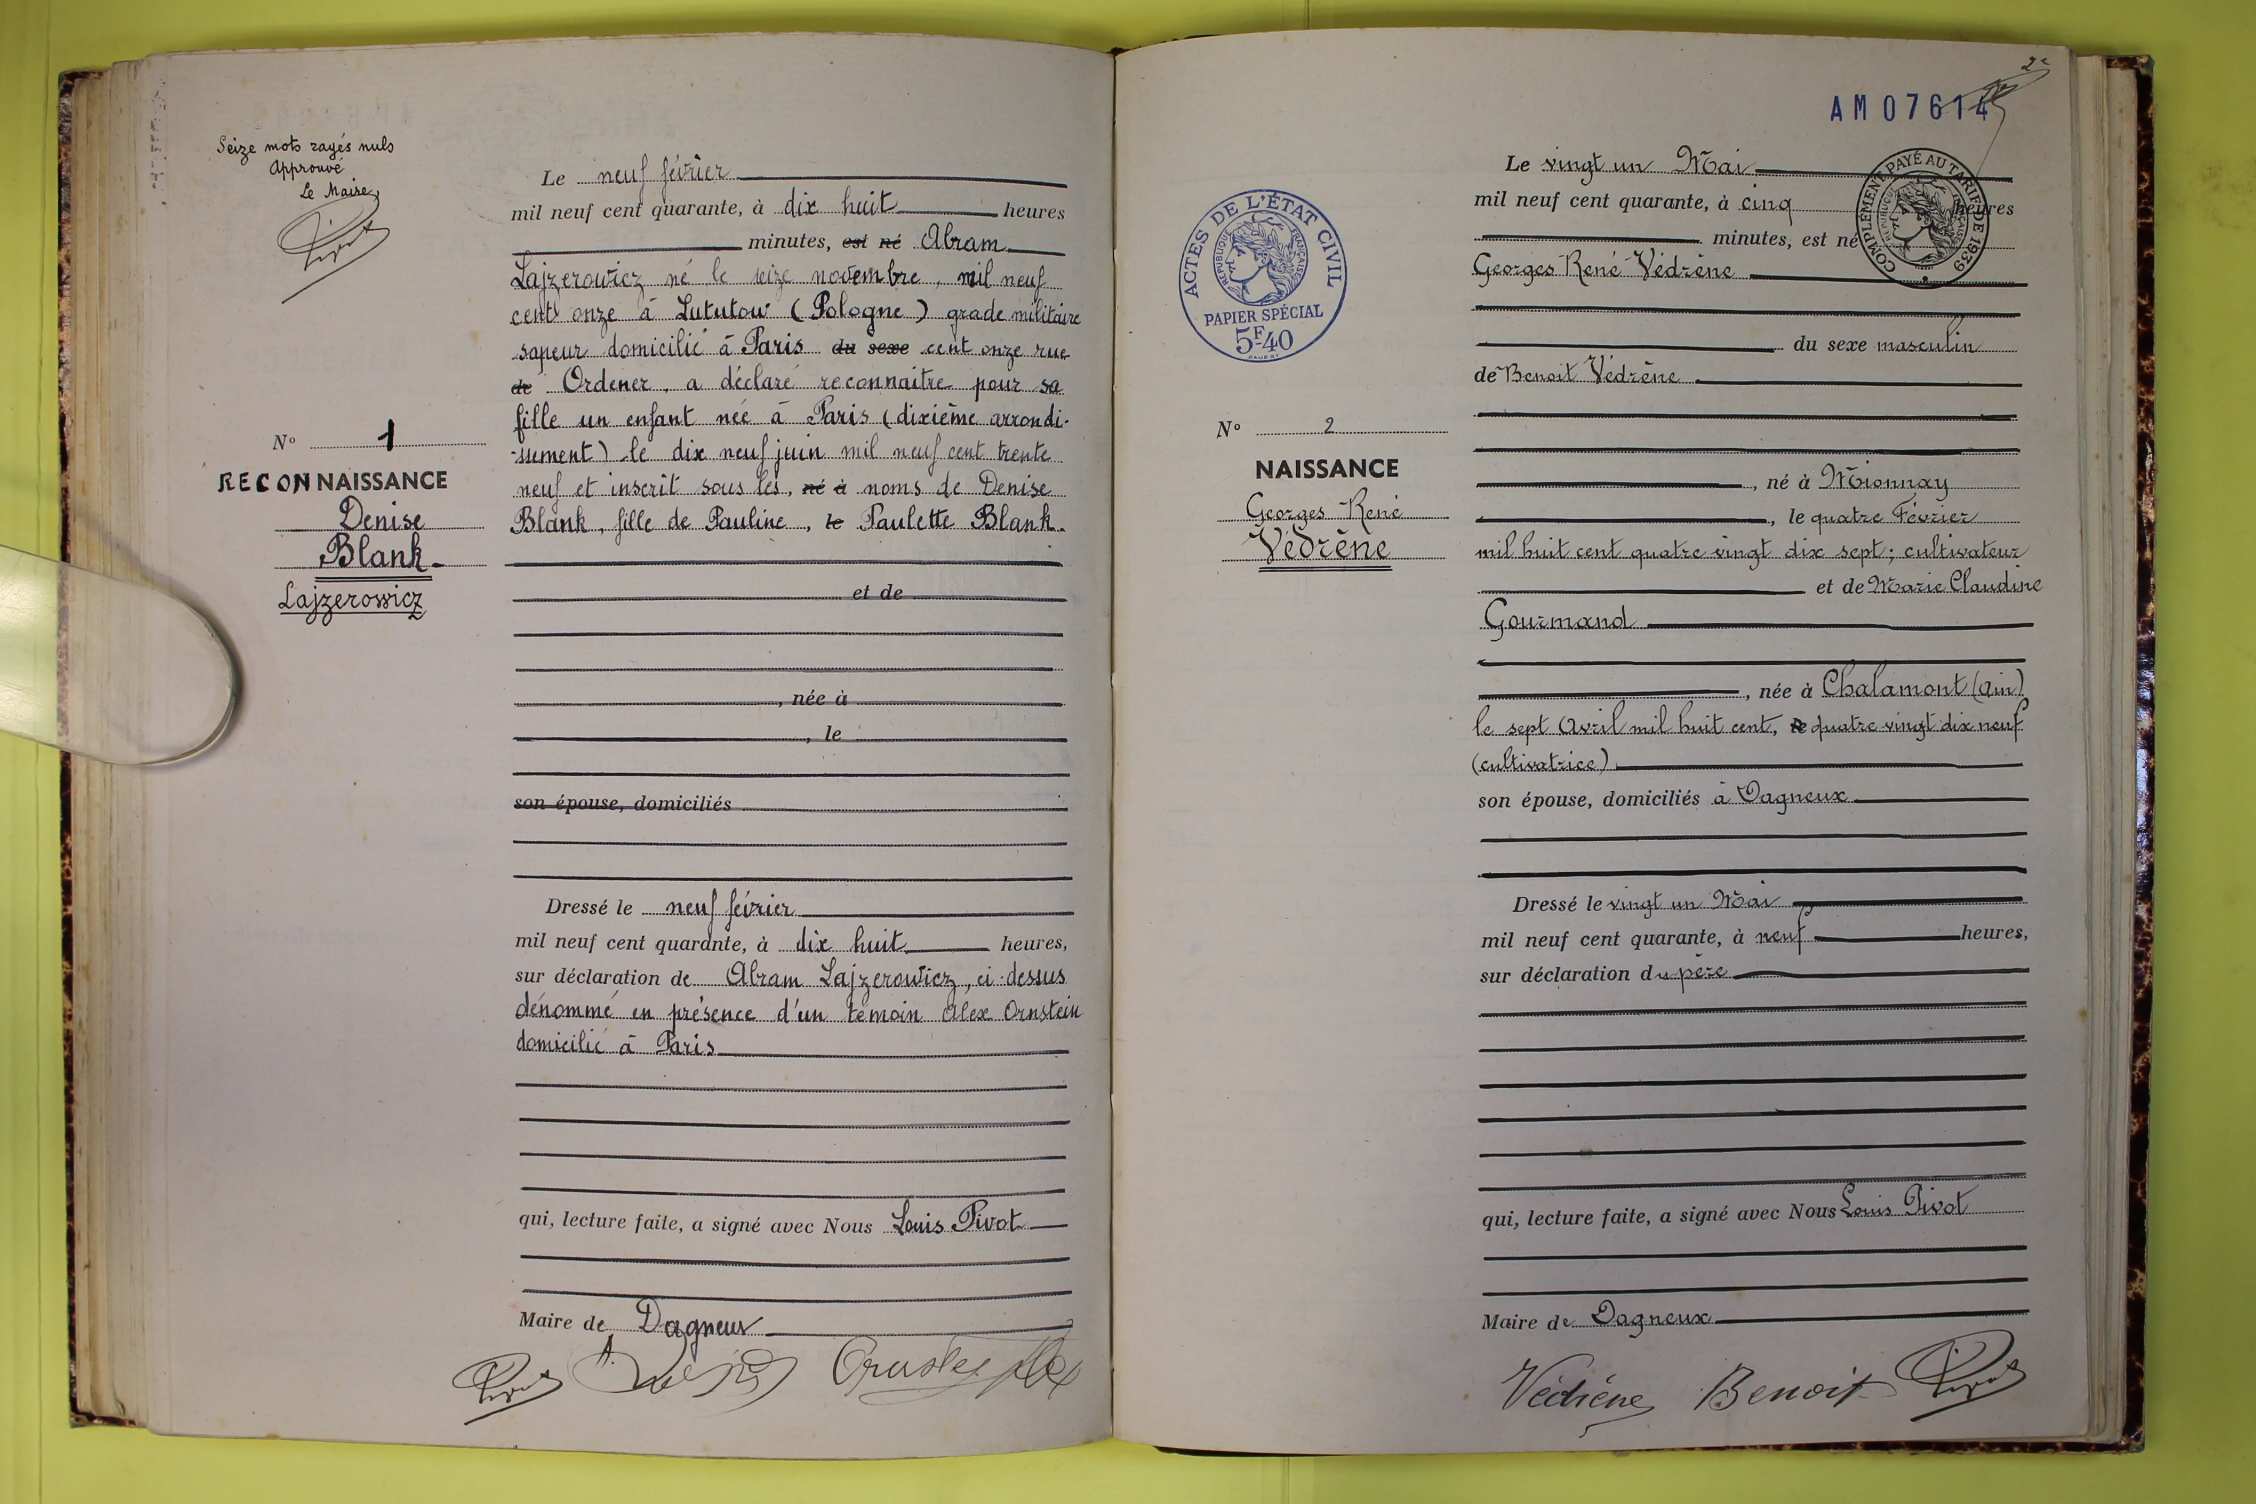 Seize mots rayés nuls
Approuvé
Le Maire
Pivot
Nº 1
RECONNAISSANCE
Denise
Blank
Lajzerowicz
Le neuf février
mil neuf cent quarante, à dix huit heures
minutes, est né Abram
Lajzerowicz né le seize novembre, mil neuf
cent onze à Lututow (Pologne) grade militaire
sapeur domicilié à Paris du sexe cent onze rue
de Ordener, a déclaré reconnaitre pour sa
fille un enfant née à Paris (dixième arrondi-
-ssement) le dix neuf juin mil neuf cent trente
neuf et inscrit sous les, né à noms de Denise
Blank, fille de Pauline, le Paulette Blank.
et de
, née à
, le
son épouse, domiciliés
Dressé le neuf février
mil neuf cent quarante, à dix huit heures,
sur déclaration de Abram Lajzerowicz, ci-dessus
dénommé en présence d'un témoin Alex Ornstein
domicilié à Paris
qui, lecture faite, a signé avec Nous Louis Pivot
Maire de Dagneux
Pivot
2e
AM07614
COMPLÉMENT PAYÉ AU TARIF DE 1939
RÉPUBLIQUE FRANÇAISE
ACTES DE L'ÉTAT CIVIL
RÉPUBLIQUE FRANÇAISE
PAPIER SPÉCIAL
5F40
Nº 2
NAISSANCE
Georges René
Védrène
Le vingt un Mai
mil neuf cent quarante, à cinq heures
minutes, est né
Georges René Védrène
du sexe masculin
de Benoit Védrène
, né à Mionnay
, le quatre Février
mil huit cent quatre vingt dix sept; cultivateur
et de Marie Claudine
Gourmand
, née à Chalamont (Ain)
le sept Avril mil huit cent, le quatre vingt dix neuf
(cultivatrice)
son épouse, domiciliés à Dagneux
Dressé le vingt un Mai
mil neuf cent quarante, à neuf heures,
sur déclaration du père
qui, lecture faite, a signé avec Nous Louis Pivot
Maire de Dagneux
Védrène Benoit Pivot